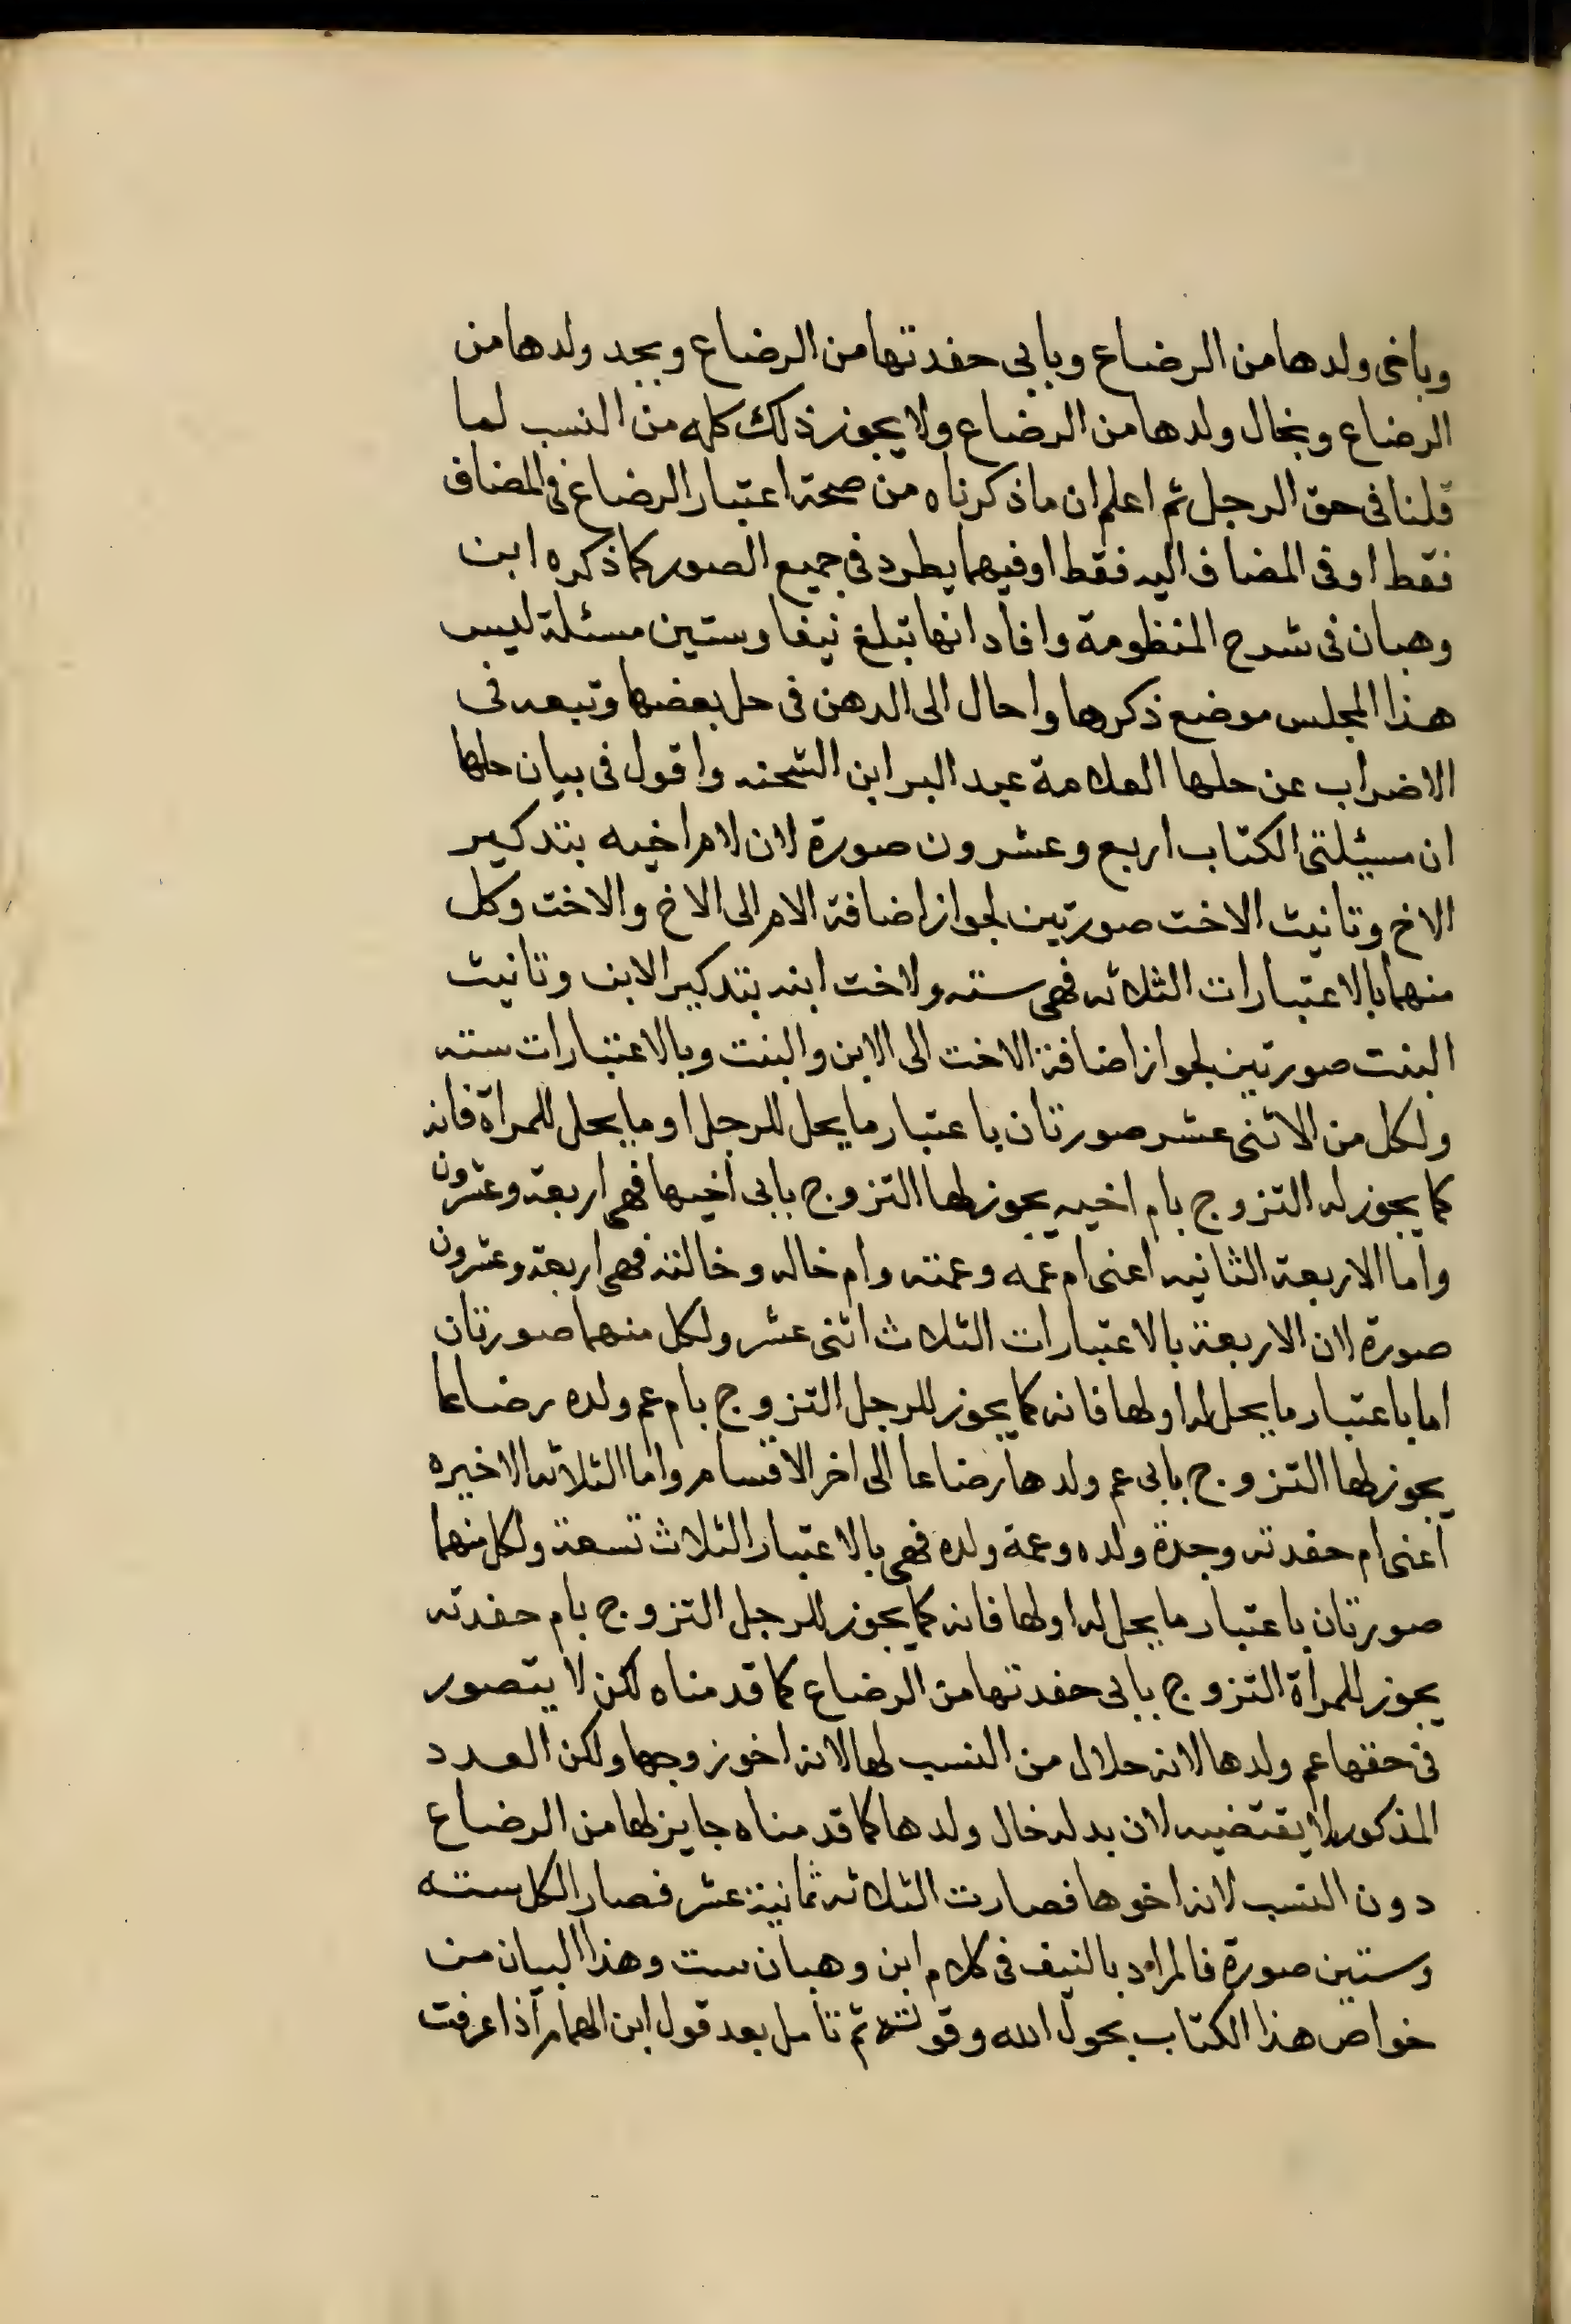 وباخى ولدها من الرضاع وبابى حفدتها من الرضاع وبجد ولدها من
الرضاع وبخال ولدها من الرضاع ولا يجوز ذلك كله من النسب لما
قلنا فى حق الرجل ثم اعلم ان ما ذكرناه من صحة اعتبار الرضاع فى المضاف
فقط او فى المضاف اليه فقط او فيهما يطرد فى جميع الصور كما ذكره ابن
وهبان فى شرح المنظومة وافاد انها تبلغ نيفا وستين مسئلة ليس
هذا المجلس موضع ذكرها واحال الى الدهن فى حل بعضها وتبعه فى
الاضراب عن حلها العلامة عبد البر ابن الشحنه واقول فى بيان حلها
ان مسيئلتى الكتاب اربع وعشرون صورة لان لام اخيه بتدكير
الاخ وتانيث الاخت صورتين لجواز اضافة الام الى الاخ والاخت وكل
منهما بالاعتبارات الثلاثه فهى سته ولاخت ابنه بتدكير الابن وتانيث
البنت صورتين لجواز اضافة الاخت الى الابن والبنت وبالاعتبارات سته
ولكل من الاثنى عشر صورتان باعتبار ما يحل للرجل او ما يحل للمراة فانه
كما يجوز له التزوج بام اخيه يجوز لها التزوج بابى اخيها فهى اربعة وعشرون
واما الاربعة الثانيه اعنى ام عمه وعمته وام خاله وخالته فهى اربعة وعشرون
صورة لان الاربعة بالاعتبارات الثلاث اثنى عشر ولكل منهما صورتان
اما باعتبار ما يحل له او لها فانه كما يجوز للرجل التزوج بام عم ولده رضاعا
يجوز لها التزوج بابى عم ولدها رضاعا الى اخر الاقسام واما الثلاثه الاخيره
اعنى ام حفدته وجدة ولده وعمة ولده فهى بالاعتبار الثلاث تسعة ولكل منهما
صورتان باعتبار ما يحل له او لها فانه كما يجوز للرجل التزوج بام حفدته
يجوز للمراة التزوج بابى حفدتها من الرضاع كما قدمناه لكن لا يتصور
فى حقها عم ولدها لانه حلال من النسب لها لانه اخو زوجها ولكن العدد
المذكور لا يقتضيه لان بدله خال ولدها كما قدمناه جايز لها من الرضاع
دون النسب لانه اخوها فصارت الثلاثه ثمانية عشر فصار الكل سته
وستين صورة فالمراد بالنيف فى كلام ابن وهبان ست وهذا البيان من
خواص هذا الكتاب بحول الله وقوته ثم تامل بعد قول ابن الهمام اذا عرفت